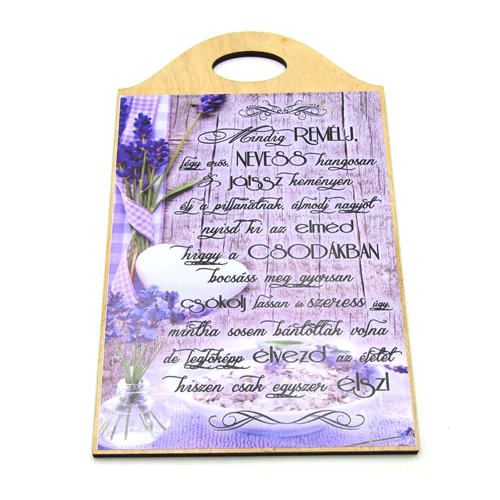 Mindig REMÉLJ,
légy erős, NEVESS hangosan
ÉS JÁTSSZ keményen
élj a pillanatnak, álmodj nagyot
nyisd ki az elméd
higgy a CSODÁKBAN
bocsáss meg gyorsan
CSÓKOLJ lassan és szeress úgy,
mintha sosem bántottak volna
de legfőképp élvezd az életet
hiszen csak egyszer élsz!